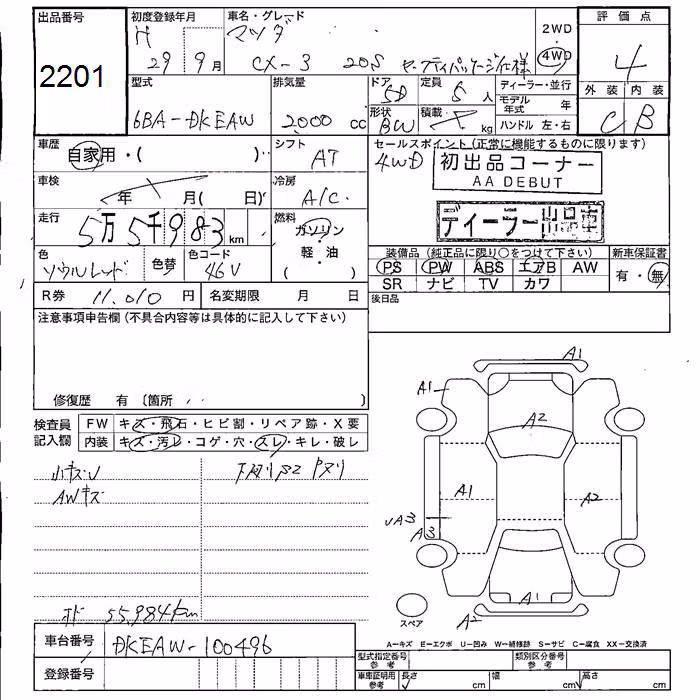 出品番号
2201
初度登録年月
H 29年 9月
車名・グレード
マツダ
CX-3 20S セーフティパッケージ仕様
2WD
4WD
評価点
4
外装 内装
C B
型式
6BA-DKEAW
排気量
2,000 cc
ドア 5D
形状 BW
定員 5人
積載 kg
ディーラー・並行
モデル年式 年
ハンドル 左・右
車歴
自家用・( )
シフト
AT
セールスポイント(正常に機能するものに限ります)
4WD
初出品コーナー
AA DEBUT
ディーラー出品車
車検
年 月( 日)
冷房
A/C
走行
5万5千983km
燃料
ガソリン
軽・油
( )
色
ソウルレッド
色替
色コード
46V
装備品(純正品に限り○をつけて下さい)
PS PW ABS エアB AW
SR ナビ TV カワ
新車保証書
有・無
R券 11,010円
名変期限 月 日
後日品
注意事項申告欄(不具合内容等は具体的に記入して下さい)
修復歴 有〔箇所 〕
検査員記入欄
FW キズ・飛石・ヒビ割・リペア跡・X要
内装 キズ・汚レ・コゲ・穴・スレ・キレ・破レ
小キズU
AWキズ
下廻りサビ
オド 55,984km
A1
A1
A2
A1
A2
UA3
A3
A1
A2
スペア
A-キズ E-エクボ U-凹み W-補修跡 S-サビ C-腐食 XX-交換済
車台番号
DKEAW-100496
登録番号
型式指定番号 参考
類別区分番号 参考
車庫証明用 参考
長さ cm
幅 cm
高さ cm